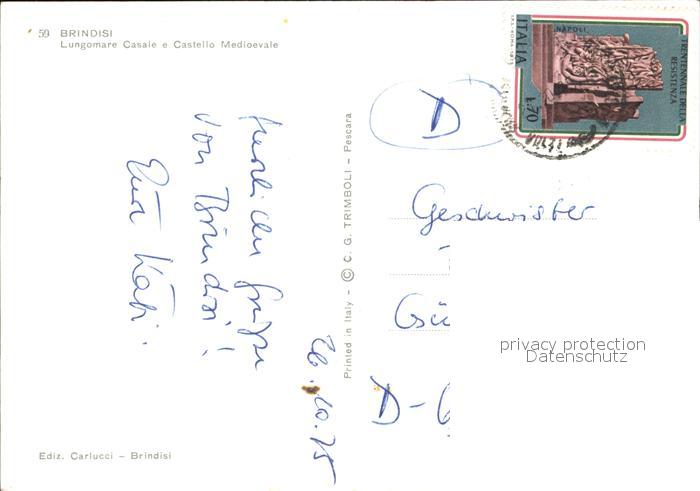 59 BRINDISI
Lungomare Casale e Castello Medioevale
26.10.75
Herzliche Grüße
von Brindisi!
Eure Käti.
Ediz. Carlucci - Brindisi
Printed in Italy - © C. G. TRIMBOLI - Pescara
ITALIA
NAPOLI
L.70
TRENTENNALE DELLA
RESISTENZA
D
Geschwister
Gü
D-6
privacy protection
Datenschutz